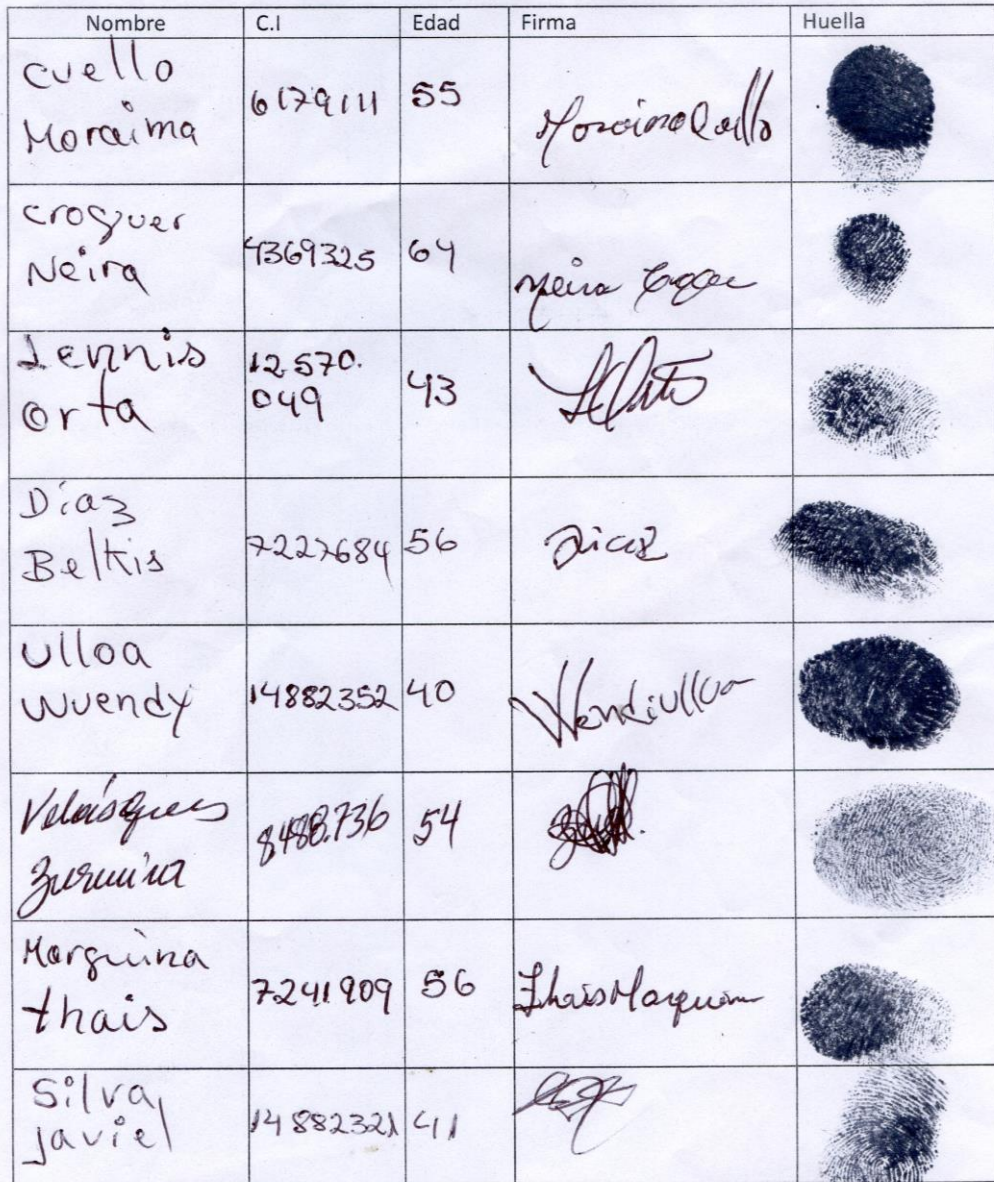 Nombre C.I Edad Firma Huella
cuello
Moraima
6179111 55
Moraima Cuello
croquer
Neira
4369325 64
Neira
Lennis
orta
12.570.
049
43
Díaz
Belkis
7227684 56
Díaz
Ulloa
Wuendy
14882352 40
Wendi Ulloa
Velásquez
Zurmira
8488.736 54
Marquina
thais
7241909 56
Thais Marquina
Silva
Javiel
14882321 41